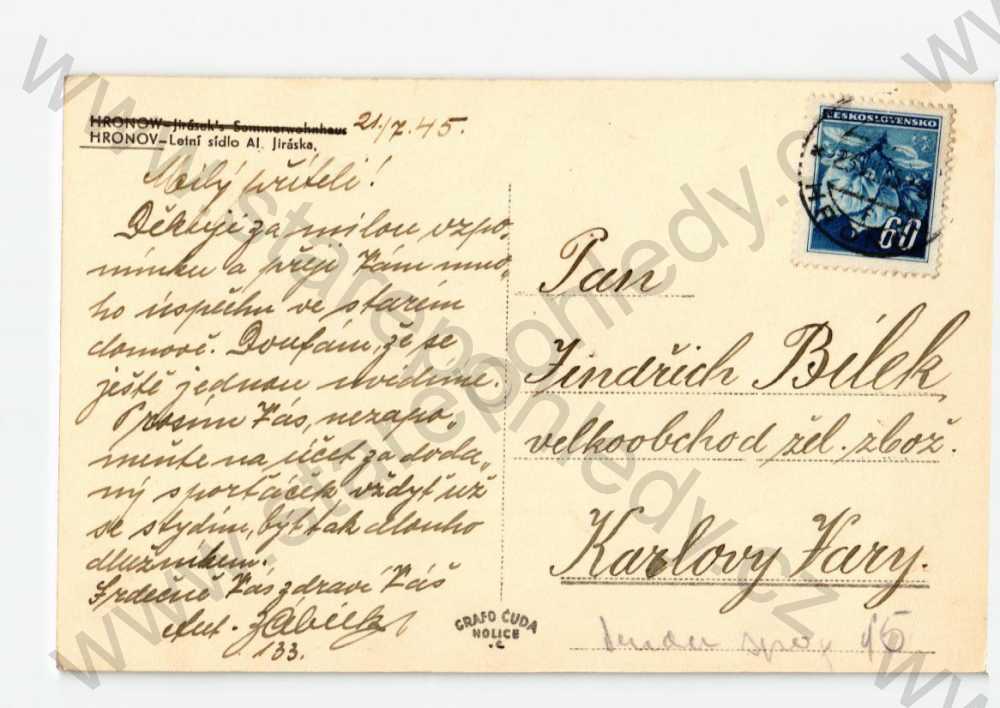 HRONOW-Jirásek's Sommerwohnhaus
HRONOV-Letní sídlo Al. Jiráska,
21./7.45.
Milý příteli!
Děkuji za milou vzpo-
mínku a přeji Vám mno-
ho úspěchu ve starém
domově. Doufám, že se
ještě jednou uvidíme.
Prosím Vás, nezapo-
meňte na účet za doda-
ný sporťáček, vždyť už
se stydím, být tak dlouho
dlužníkem.
Srdečně Vás zdraví Váš
Ant.
133.
GRAFO ČUDA
HOLICE
Č
ČESKOSLOVENSKO
60
Pan
Jindřich Bílek
velkoobchod žel. zbož.
Karlovy Vary.
45
www.starepohledy.cz
www.starepohledy.cz